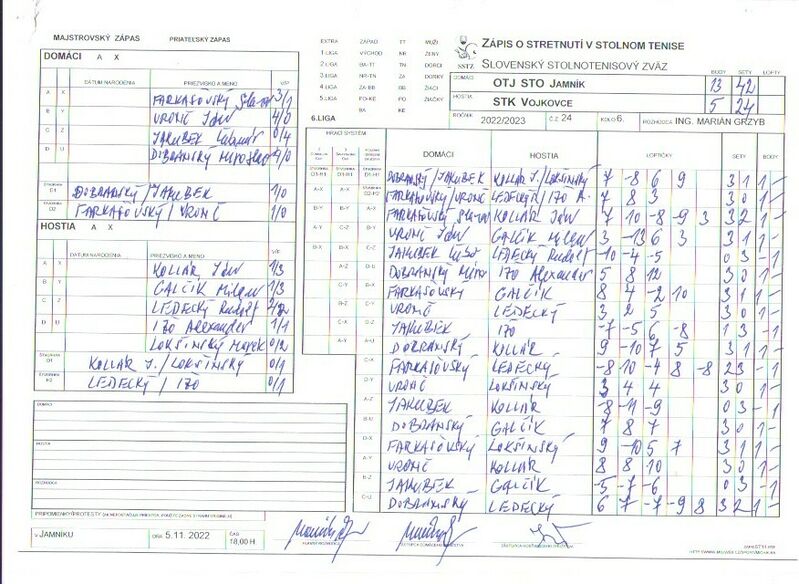 MAJSTROVSKÝ ZÁPAS PRIATEĽSKÝ ZÁPAS
DOMÁCI A X
DÁTUM NARODENIA PRIEZVISKO A MENO V/P
A X FARKAŠOVSKÝ 3/1
B Y VRONČ Ján 4/0
C Z JAKUBEK 0/4
D U DOBRANSKÝ Miroslav 4/0
Štvorhra D1 DOBRANSKÝ / JAKUBEK 1/0
Štvorhra D2 FARKAŠOVSKÝ / VRONČ 1/0
HOSTIA A X
DÁTUM NARODENIA PRIEZVISKO A MENO V/P
A X KOLLÁR Ján 1/3
B Y GALČÍK Milan 1/3
C Z LEDECKÝ Rudolf
D U IŽO Alexander 1/1
LOKŠINSKÝ Marek 0/2
KOLLÁR J. / LOKŠINSKÝ 0/1
LEDECKÝ / IŽO 0/1
DOMÁCI
HOSTIA
ROZHODCA
PRIPOMIENKY/PROTESTY
V JAMNIKU DŇA 5.11.2022 ČAS 18,00 H.
EXTRA ZÁPAD TT MUŽI
1 LIGA VÝCHOD NR ŽENY
2 LIGA BA-TT TN DORCI
3 LIGA NR-TN ZA DORKY
4 LIGA ZA-BB BB ŽIACI
5 LIGA PO-KE PO ŽIAČKY
BA KE
6.LIGA
ZÁPIS O STRETNUTÍ V STOLNOM TENISE
SSTZ SLOVENSKÝ STOLNOTENISOVÝ ZVÄZ
BODY SETY LOPTY
DOMÁCI OTJ STO JAMNÍK 13 42
HOSTIA STK VOJKOVCE 5 24
ROČNÍK 2022/2023 Č.Z 24 KOLO 6. ROZHODCA ING. MARIÁN GRZYB
HRACÍ SYSTÉM DOMÁCI HOSTIA LOPTIČKY SETY BODY
DOBRANSKÝ / JAKUBEK KOLLÁR J. / LOKŠINSKÝ 7 -8 6 9 3 1 1 -
FARKAŠOVSKÝ / VRONČ LEDECKÝ / IŽO A. 7 8 3 3 0 1 -
FARKAŠOVSKÝ KOLLÁR Ján 7 10 -8 -9 3 3 2 1 -
VRONČ Ján GALČÍK Milan 3 -13 6 3 3 1 1 -
JAKUBEK LEDECKÝ Rudolf -10 -4 -5 0 3 - 1
DOBRANSKÝ IŽO Alexander 5 8 12 3 0 1 -
FARKAŠOVSKÝ GALČÍK 8 4 -2 10 3 1 1 -
VRONČ LEDECKÝ 3 2 5 3 0 1 -
JAKUBEK IŽO -7 -5 6 -8 1 3 - 1
DOBRANSKÝ KOLLÁR 9 -10 7 5 3 1 1 -
FARKAŠOVSKÝ LEDECKÝ -8 10 -4 8 -8 2 3 - 1
VRONČ LOKŠINSKÝ 3 4 4 3 0 1 -
JAKUBEK KOLLÁR -8 -11 -9 0 3 - 1
DOBRANSKÝ GALČÍK 7 8 7 3 0 1 -
FARKAŠOVSKÝ LOKŠINSKÝ 9 -10 5 7 3 1 1 -
VRONČ KOLLÁR 8 8 10 3 0 1 -
JAKUBEK GALČÍK -5 -7 -6 0 3 - 1
DOBRANSKÝ LEDECKÝ 6 7 -7 -9 8 3 2 1 -